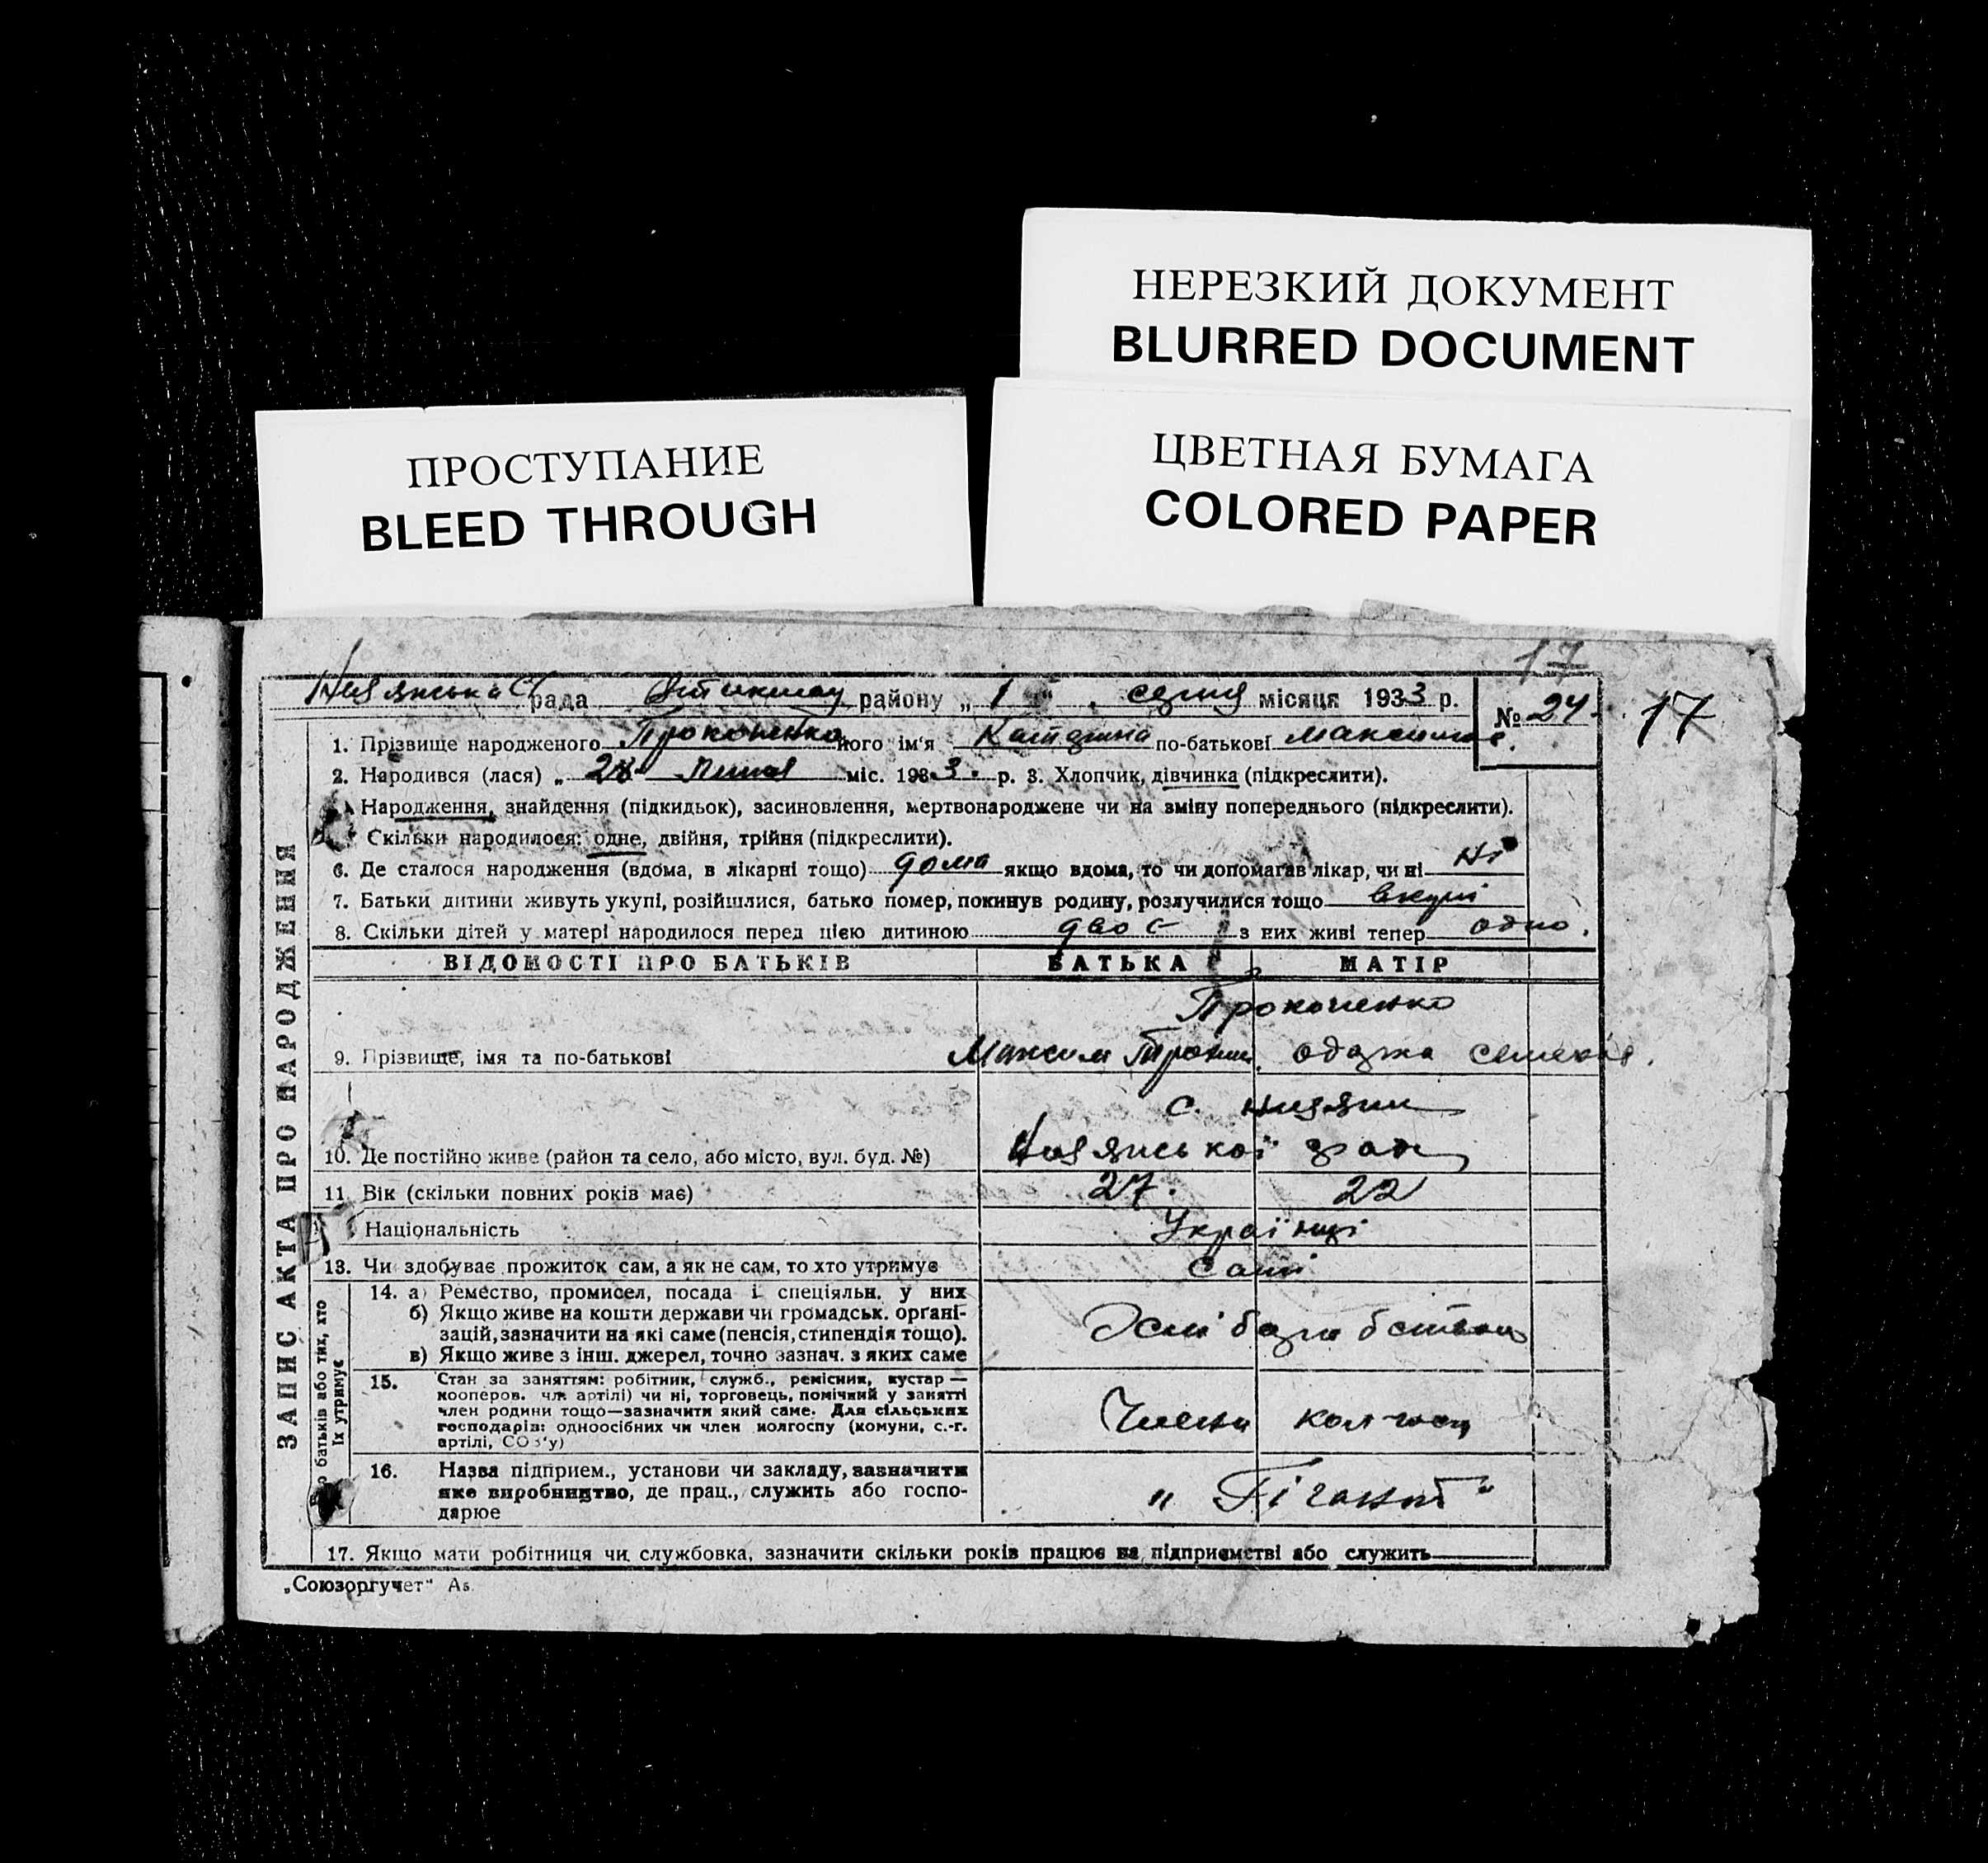 НЕРЕЗКИЙ ДОКУМЕНТ
BLURRED DOCUMENT
ПРОСТУПАНИЕ
BLEED THROUGH
ЦВЕТНАЯ БУМАГА
COLORED PAPER
17
рада району „ 1 “ серпня місяця 1933 р.
№ 24
17
ЗАПИС АКТА ПРО НАРОДЖЕННЯ
1. Прізвище народженого Прокопенко його ім'я по-батькові Максим
2. Народився (лася) „ 28 міс. 1933 р. 3. Хлопчик, дівчинка (підкреслити).
Народження, знайдення (підкидьок), засиновлення, мертвонароджене чи на зміну попереднього (підкреслити).
Скільки народилося: одне, двійня, трійня (підкреслити).
6. Де сталося народження (вдома, в лікарні тощо) дома якщо вдома, то чи допомагав лікар, чи ні ні
7. Батьки дитини живуть укупі, розійшлися, батько помер, покинув родину, розлучилися тощо вкупі
8. Скільки дітей у матері народилося перед цією дитиною двоє з них живі тепер одно.
ВІДОМОСТІ ПРО БАТЬКІВ БАТЬКА МАТІР
Прокопенко
9. Прізвище, імя та по-батькові Максим
с.
10. Де постійно живе (район та село, або місто, вул. буд. №) ради
11. Вік (скільки повних років має) 27. 22
Національність Українці
13. Чи здобуває прожиток сам, а як не сам, то хто утримує сами
батьків або тих, хто їх утримує
14. а) Ремество, промисел, посада і спеціяльн. у них
б) Якщо живе на кошти держави чи громадськ. органі-
зацій, зазначити на які саме (пенсія, стипендія тощо).
в) Якщо живе з інш. джерел, точно зазнач. з яких саме
15. Стан за заняттям: робітник, служб., ремісник, кустар —
кооперов. чл. артілі) чи ні, торговець, помічний у занятті
член родини тощо—зазначити який саме. Для сільських
господарів: одноосібних чи член колгоспу (комуни, с.-г.
артілі, СОЗ'у)
Члени колгоспу
16. Назва підприєм., установи чи закладу, зазначити
яке виробництво, де прац., служить або госпо-
дарює
„ Гігант “
17. Якщо мати робітниця чи службовка, зазначити скільки років працює на підприємстві або служить
„Союзоргучет“ А5